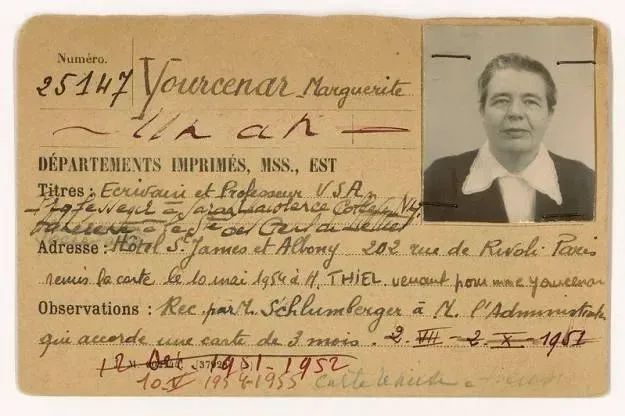 Numéro.
25147 Yourcenar Marguerite
Un an
DÉPARTEMENTS IMPRIMÉS, MSS., EST
Titres : Ecrivain et Professeur USA.
Professeur à Sarah Lawrence N.Y.
Adresse : Hôtel St James et Albony 202 rue de Rivoli Paris
remis la carte le 10 mai 1954 à H. THIEL venant pour mme yourcenar
Observations : Rec. par M. Schlumberger à M. l'Administrateur
qui accorde une carte de 3 mois. 2 VII - 2 X - 1951
12 Oct 1951-1952
10 V 1954-1955 carte